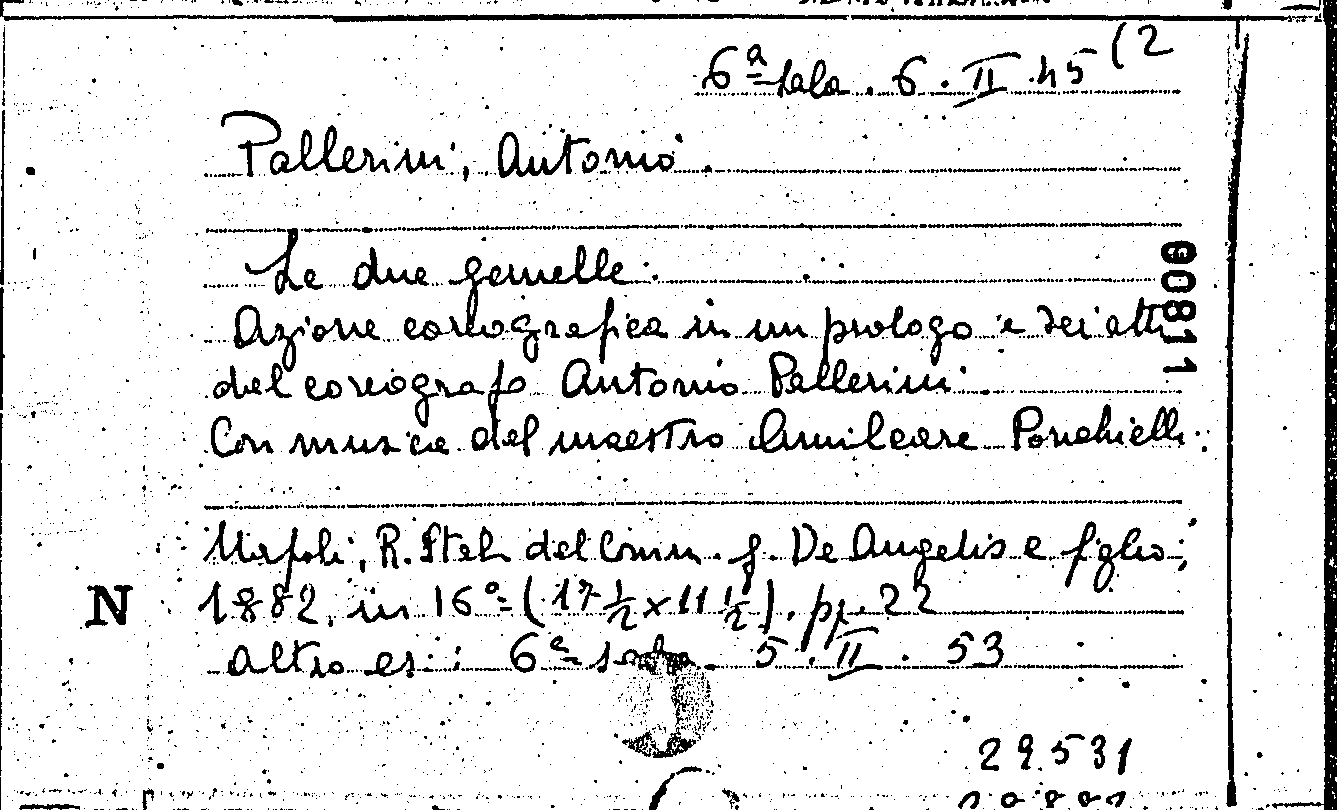 6ª sala. 6. II. 45 (2
Pallerini, Antonio.
Le due gemelle.
Azione coreografica in un prologo e sei atti
del coreografo Antonio Pallerini.
Con musica del maestro Amilcare Ponchielli.
Napoli, R. Stab. del Comm. G. De Angelis e figlio,
N 1882. in 16° (17 ½ x 11 ½). pp. 22
altro es.: 6ª sala. 5. II. 53
00811
29531